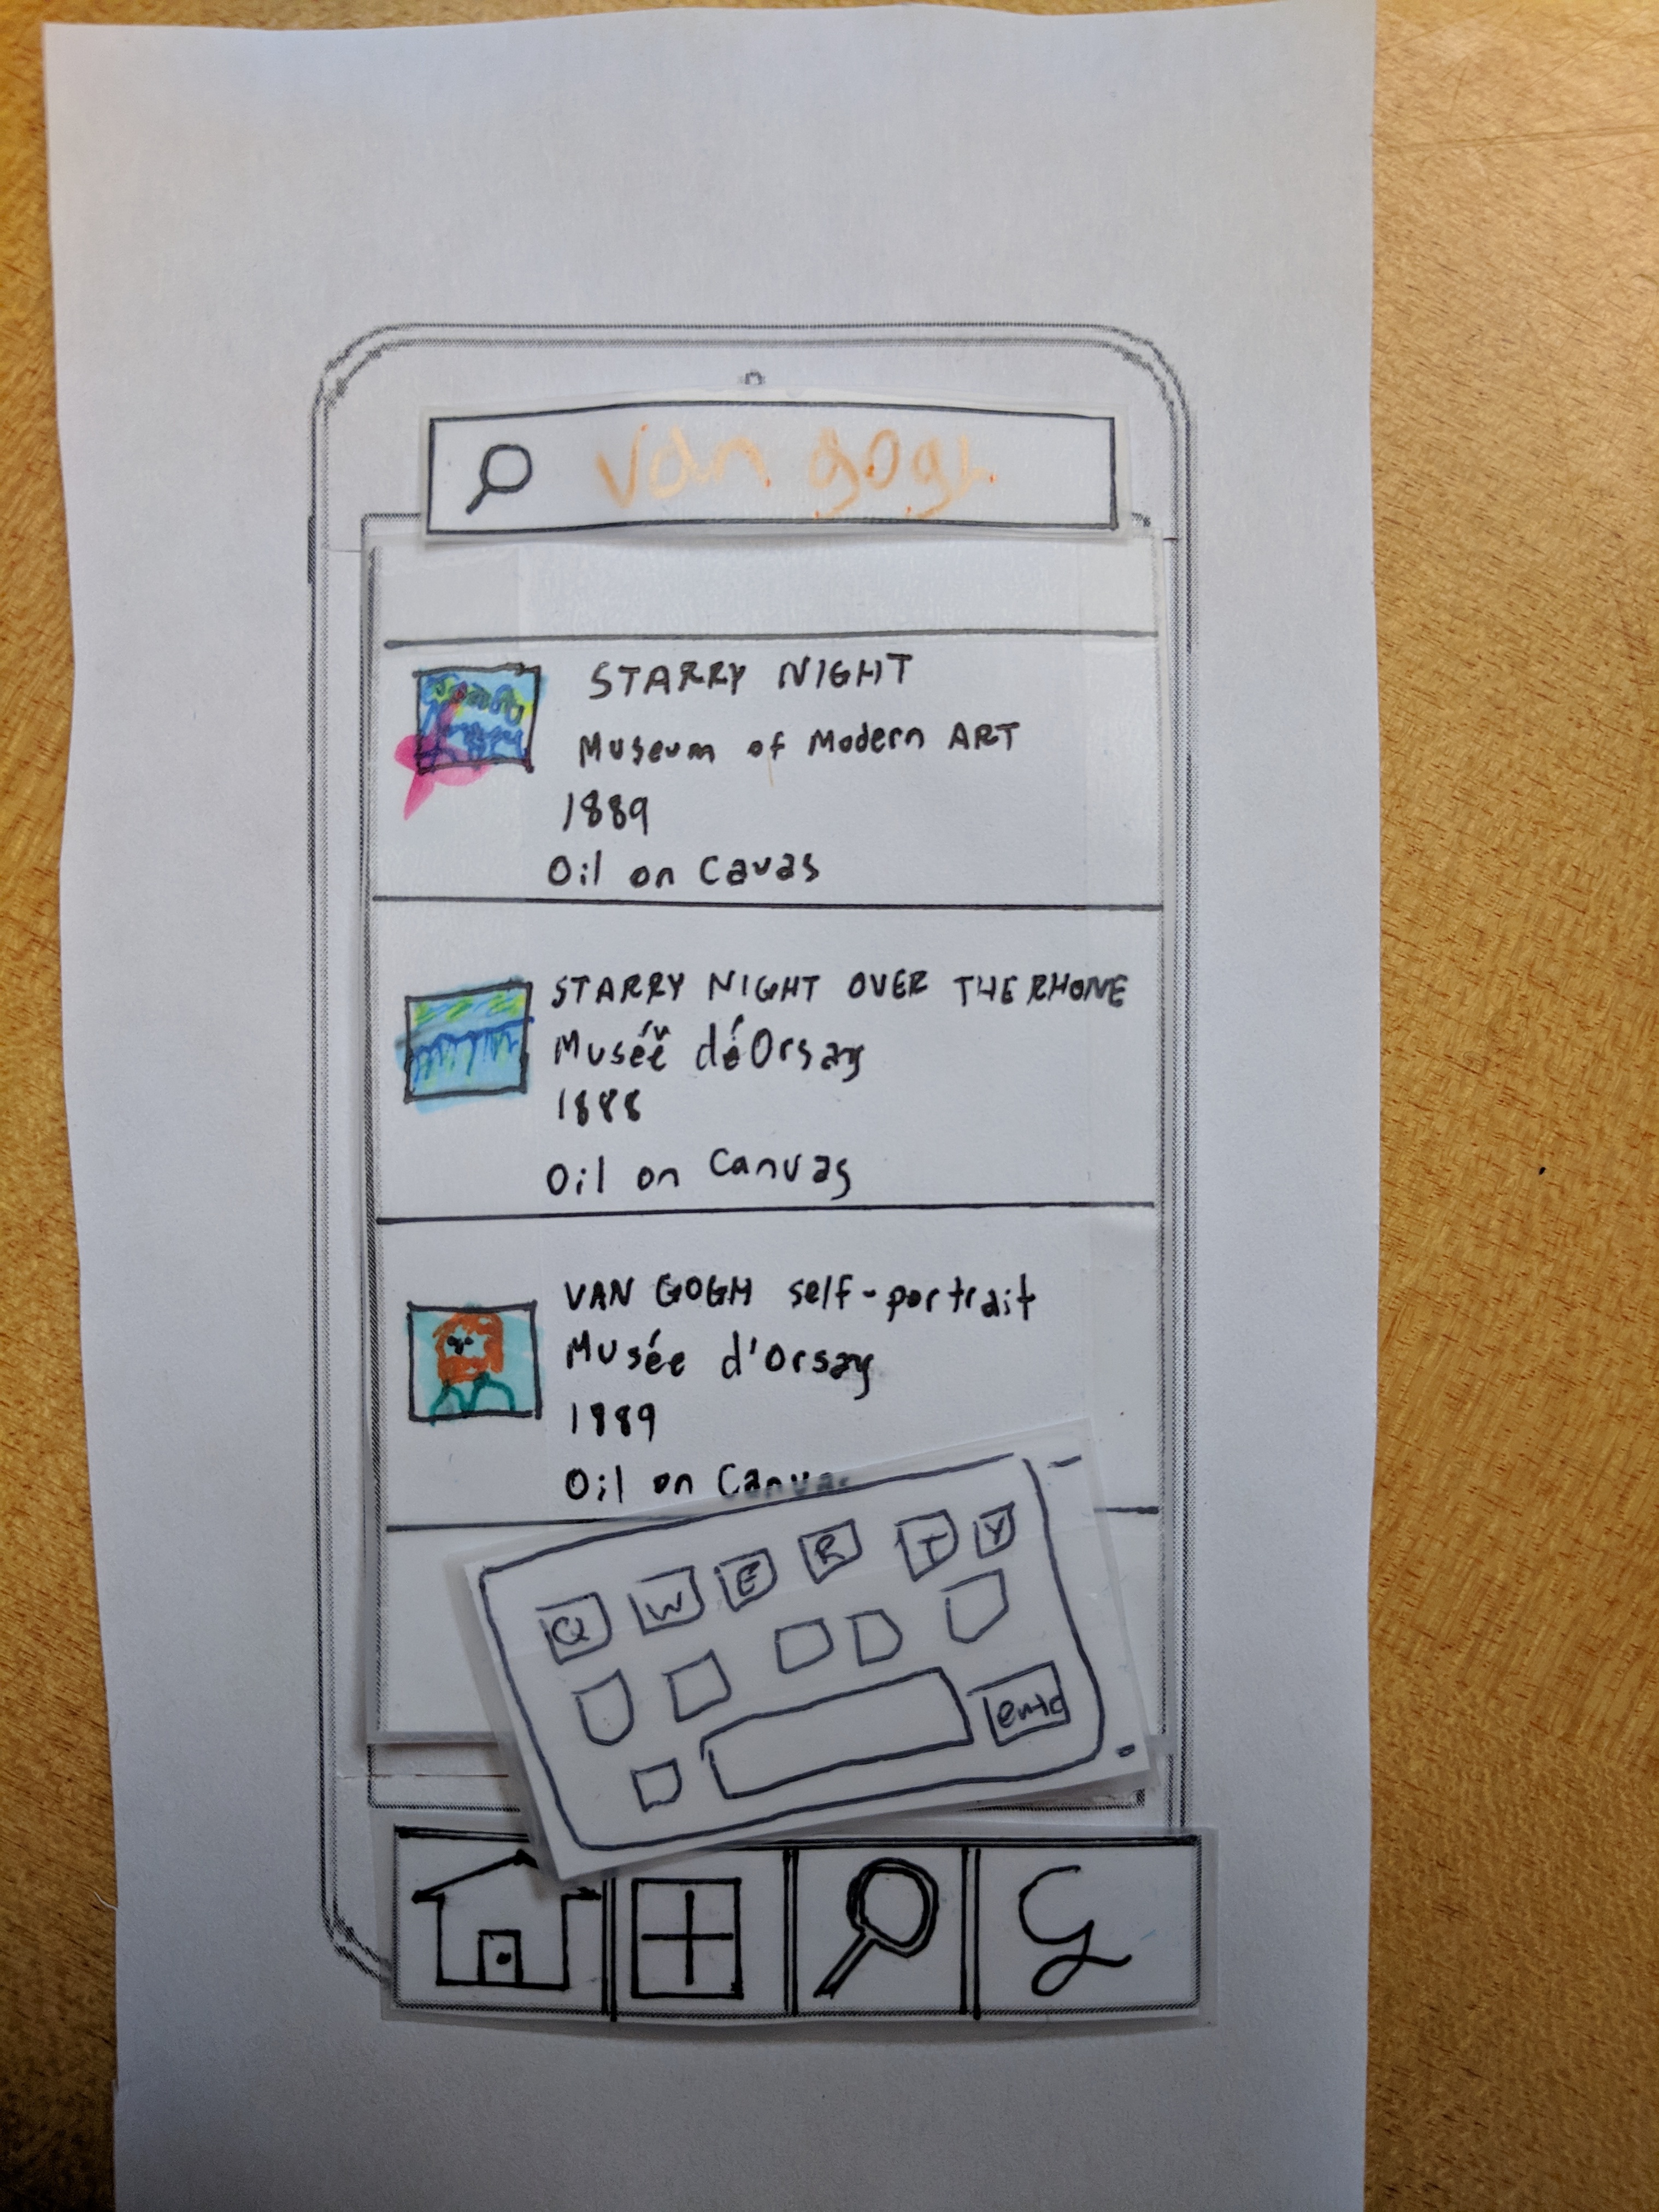 van gogh
STARRY NIGHT
Museum of Modern ART
1889
Oil on Cavas
STARRY NIGHT OVER THE RHONE
Musée d'Orsay
1888
Oil on Canvas
VAN GOGH self-portrait
Musée d'Orsay
1889
Oil on Canvas
Q W E R T Y